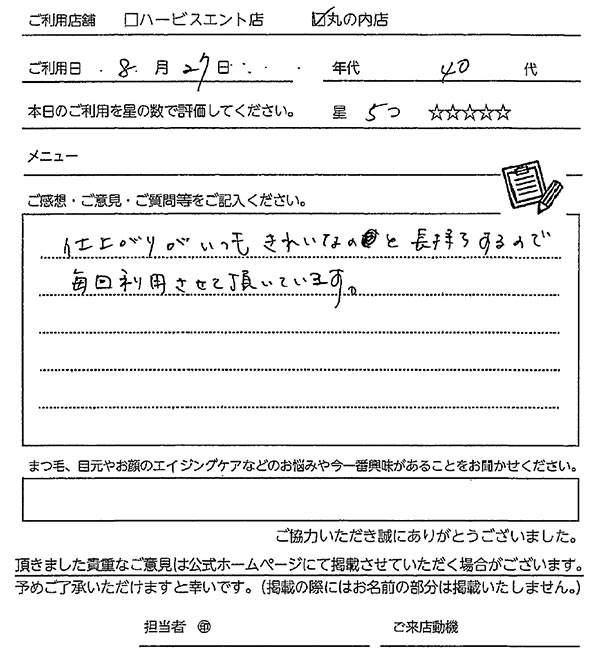 ご利用店舗 □ハービスエント店 ☑丸の内店
ご利用日 8月27日 年代 40代
本日のご利用を星の数で評価してください。 星 5つ ☆☆☆☆☆
メニュー
ご感想・ご意見・ご質問等をご記入ください。
仕上がりがいつもきれいなのと長持ちするので
毎回利用させて頂いています。
まつ毛、目元やお顔のエイジングケアなどのお悩みや今一番興味があることをお聞かせください。
ご協力いただき誠にありがとうございました。
頂きました貴重なご意見は公式ホームページにて掲載させていただく場合がございます。
予めご了承いただけますと幸いです。(掲載の際にはお名前の部分は掲載いたしません。)
担当者 ㊞ ご来店動機